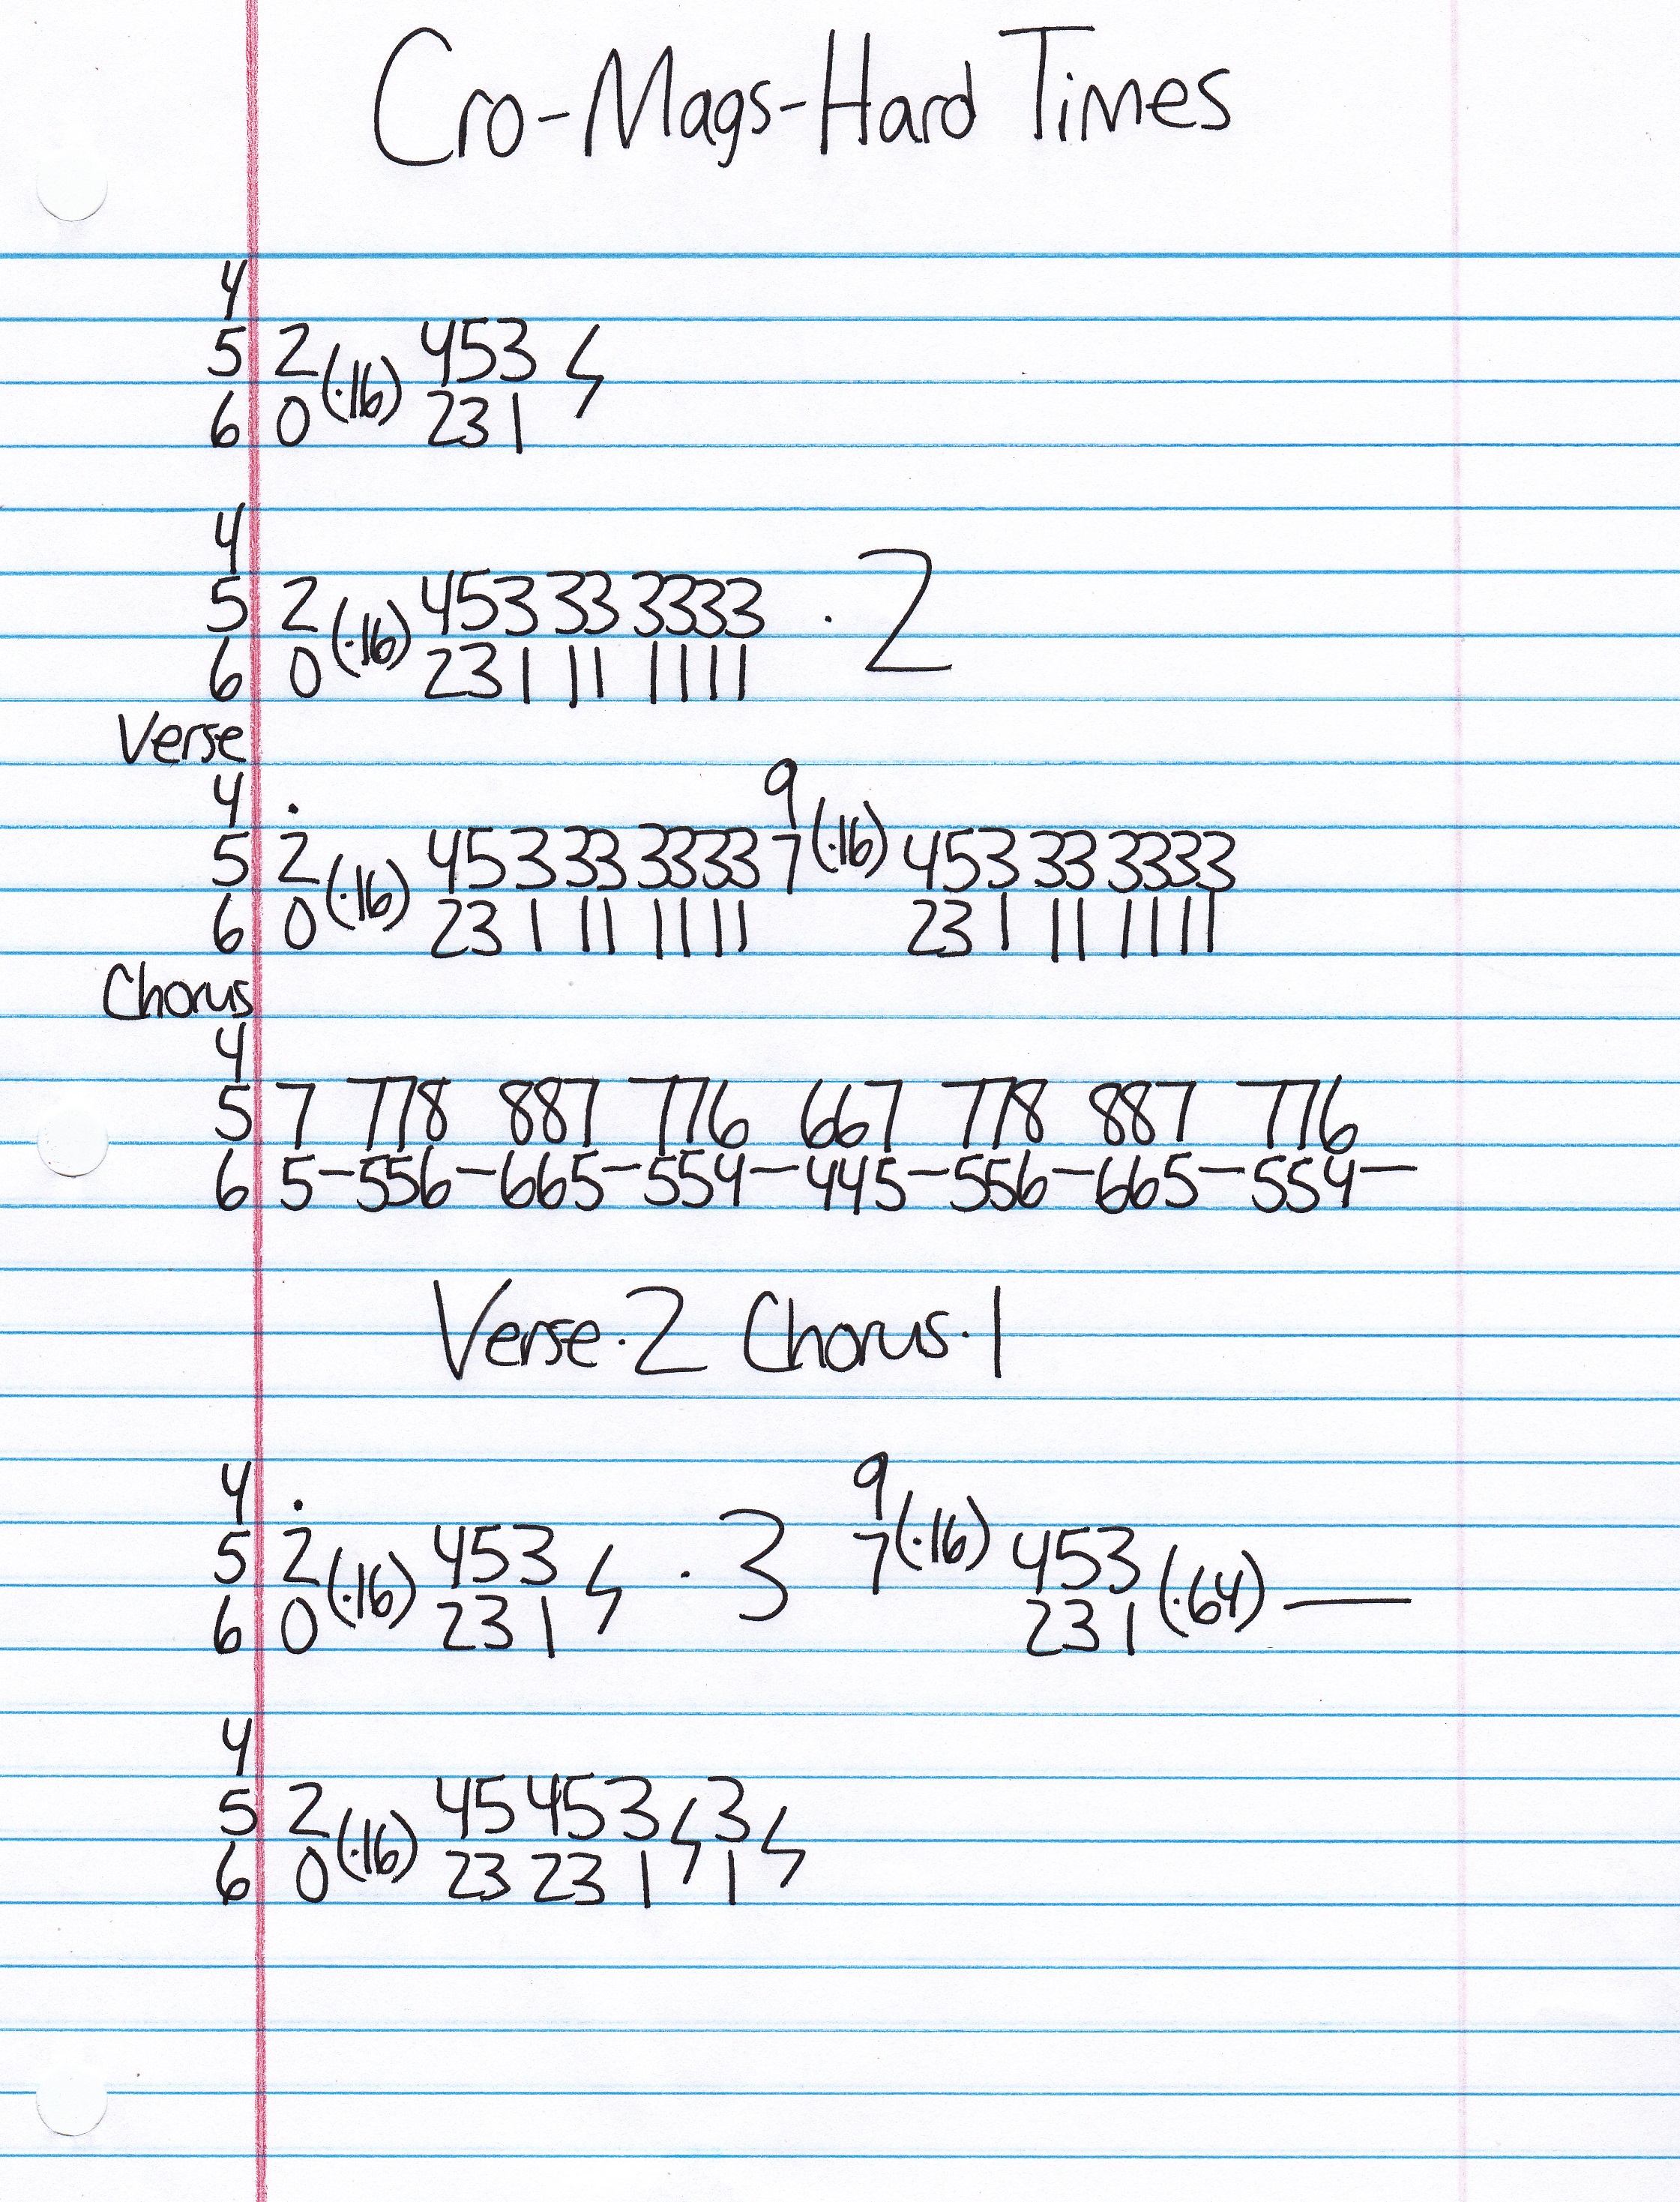 Cro-Mags-Hard Times
4
5 2 (·16) 453 ϟ
6 0 231
4
5 2 (·16) 453 33 3333 · 2
6 0 231 11 1111
Verse
4 . 9
5 2 (·16) 453 33 3333 7 (·16) 453 33 3333
6 0 231 11 1111 231 11 1111
Chorus
4
5 7 778 887 776 667 778 887 776
6 5-556-665-554-445-556-665-554-
Verse·2 Chorus·1
4 . 9
5 2 (·16) 453 ϟ · 3 7 (·16) 453 (·64) —
6 0 231 231
4
5 2 (·16) 45 453 ϟ 3 ϟ
6 0 23 231 1